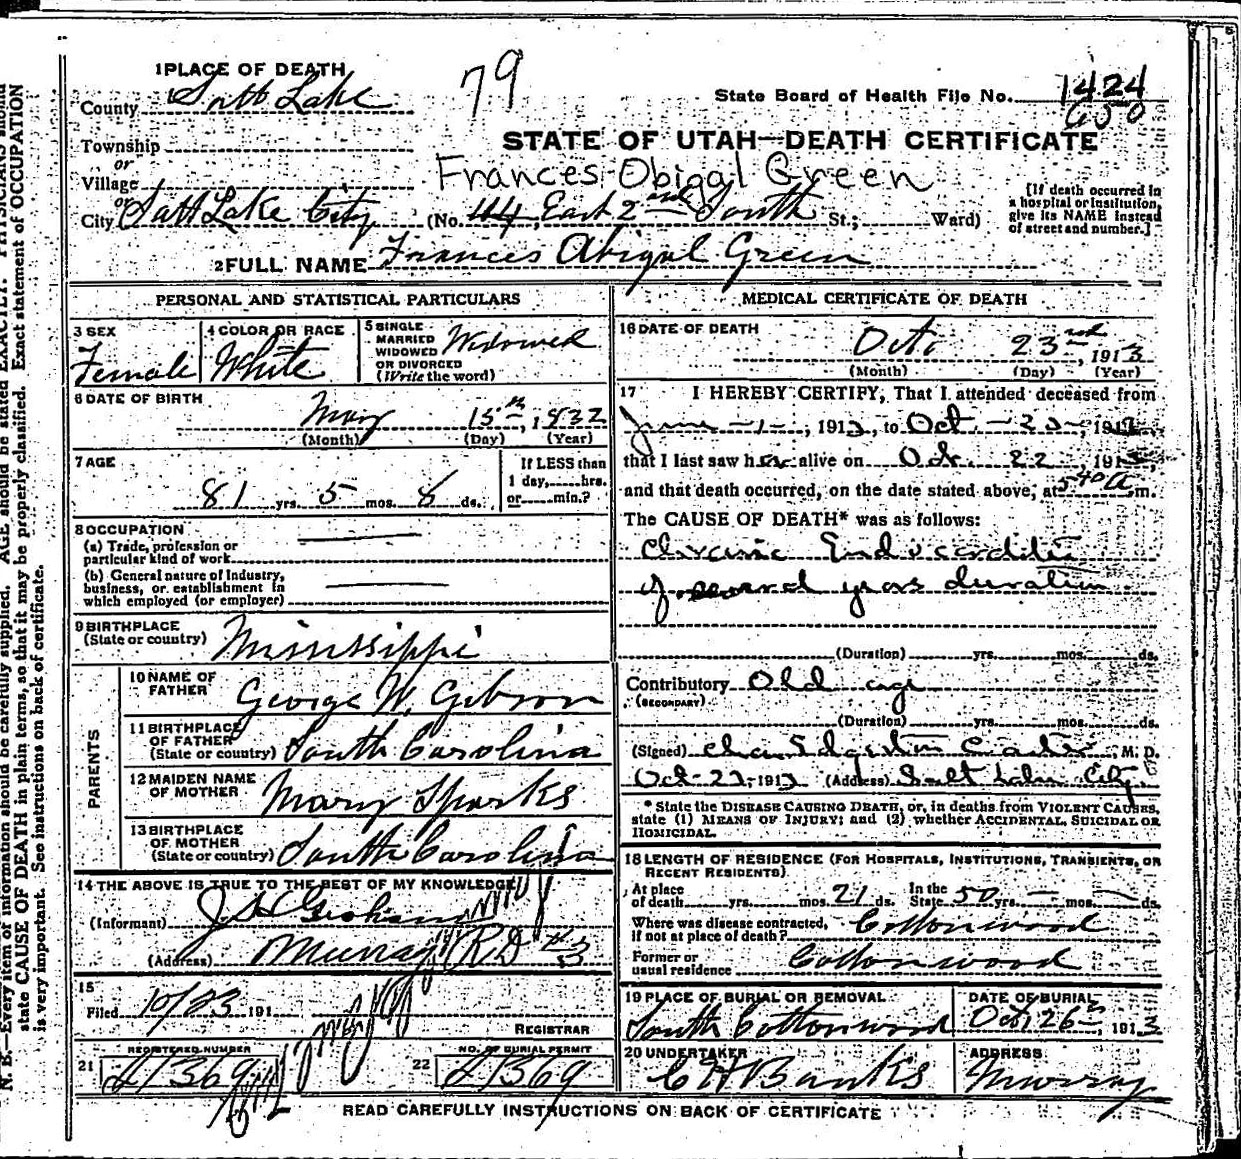 79
1 PLACE OF DEATH
County Salt Lake
State Board of Health File No. 1424
650
STATE OF UTAH—DEATH CERTIFICATE
Township
or
Village
or
Frances Obigal Green
City Salt Lake City (No. 44, East 2nd South St.; Ward)
[If death occurred in a hospital or institution, give its NAME instead of street and number.]
2 FULL NAME Frances Abigal Green
PERSONAL AND STATISTICAL PARTICULARS
3 SEX
Female
4 COLOR OR RACE
White
5 SINGLE
MARRIED
WIDOWED
OR DIVORCED
(Write the word)
Widowed
6 DATE OF BIRTH
May 15th, 1832
(Month) (Day) (Year)
7 AGE
81 yrs. 5 mos. 8 ds.
If LESS than
1 day, hrs.
or min.?
8 OCCUPATION
(a) Trade, profession or
particular kind of work
(b) General nature of industry,
business, or establishment in
which employed (or employer)
9 BIRTHPLACE
(State or country) Mississippi
PARENTS
10 NAME OF
FATHER George W. Gibson
11 BIRTHPLACE
OF FATHER
(State or country) South Carolina
12 MAIDEN NAME
OF MOTHER Mary Sparks
13 BIRTHPLACE
OF MOTHER
(State or country) South Carolina
14 THE ABOVE IS TRUE TO THE BEST OF MY KNOWLEDGE
(Informant)
(Address) Murray RD #3
15
Filed 10/23 191
REGISTRAR
21 REGISTERED NUMBER
22 NO. OF BURIAL PERMIT
MEDICAL CERTIFICATE OF DEATH
16 DATE OF DEATH
Octo 23rd, 1913
(Month) (Day) (Year)
17 I HEREBY CERTIFY, That I attended deceased from
June -1-, 1913, to Oct - 23-, 191
that I last saw her alive on Oct. 22, 1913,
and that death occurred, on the date stated above, at 5 40 a m.
The CAUSE OF DEATH* was as follows:
Chronic Endocarditis
of several years duration
(Duration) yrs. mos. ds.
Contributory Old age
(SECONDARY)
(Duration) yrs. mos. ds.
(Signed) M. D.
Oct-23-1913 (Address) Salt Lake City.
* State the DISEASE CAUSING DEATH, or, in deaths from VIOLENT CAUSES,
state (1) MEANS OF INJURY; and (2) whether ACCIDENTAL, SUICIDAL OR
HOMICIDAL.
18 LENGTH OF RESIDENCE (FOR HOSPITALS, INSTITUTIONS, TRANSIENTS, OR
RECENT RESIDENTS)
At place
of death yrs. mos. 21 ds.
In the
State 50 yrs. mos. ds.
Where was disease contracted,
if not at place of death? Cottonwood
Former or
usual residence Cottonwood
19 PLACE OF BURIAL OR REMOVAL
South Cottonwood
DATE OF BURIAL
Oct, 26th, 1913
20 UNDERTAKER
C H Banks
ADDRESS
Murray
READ CAREFULLY INSTRUCTIONS ON BACK OF CERTIFICATE
N. B.—Every item of information should be carefully supplied. AGE should be stated EXACTLY. PHYSICIANS should
state CAUSE OF DEATH in plain terms, so that it may be properly classified. Exact statement of OCCUPATION
is very important. See instructions on back of certificate.